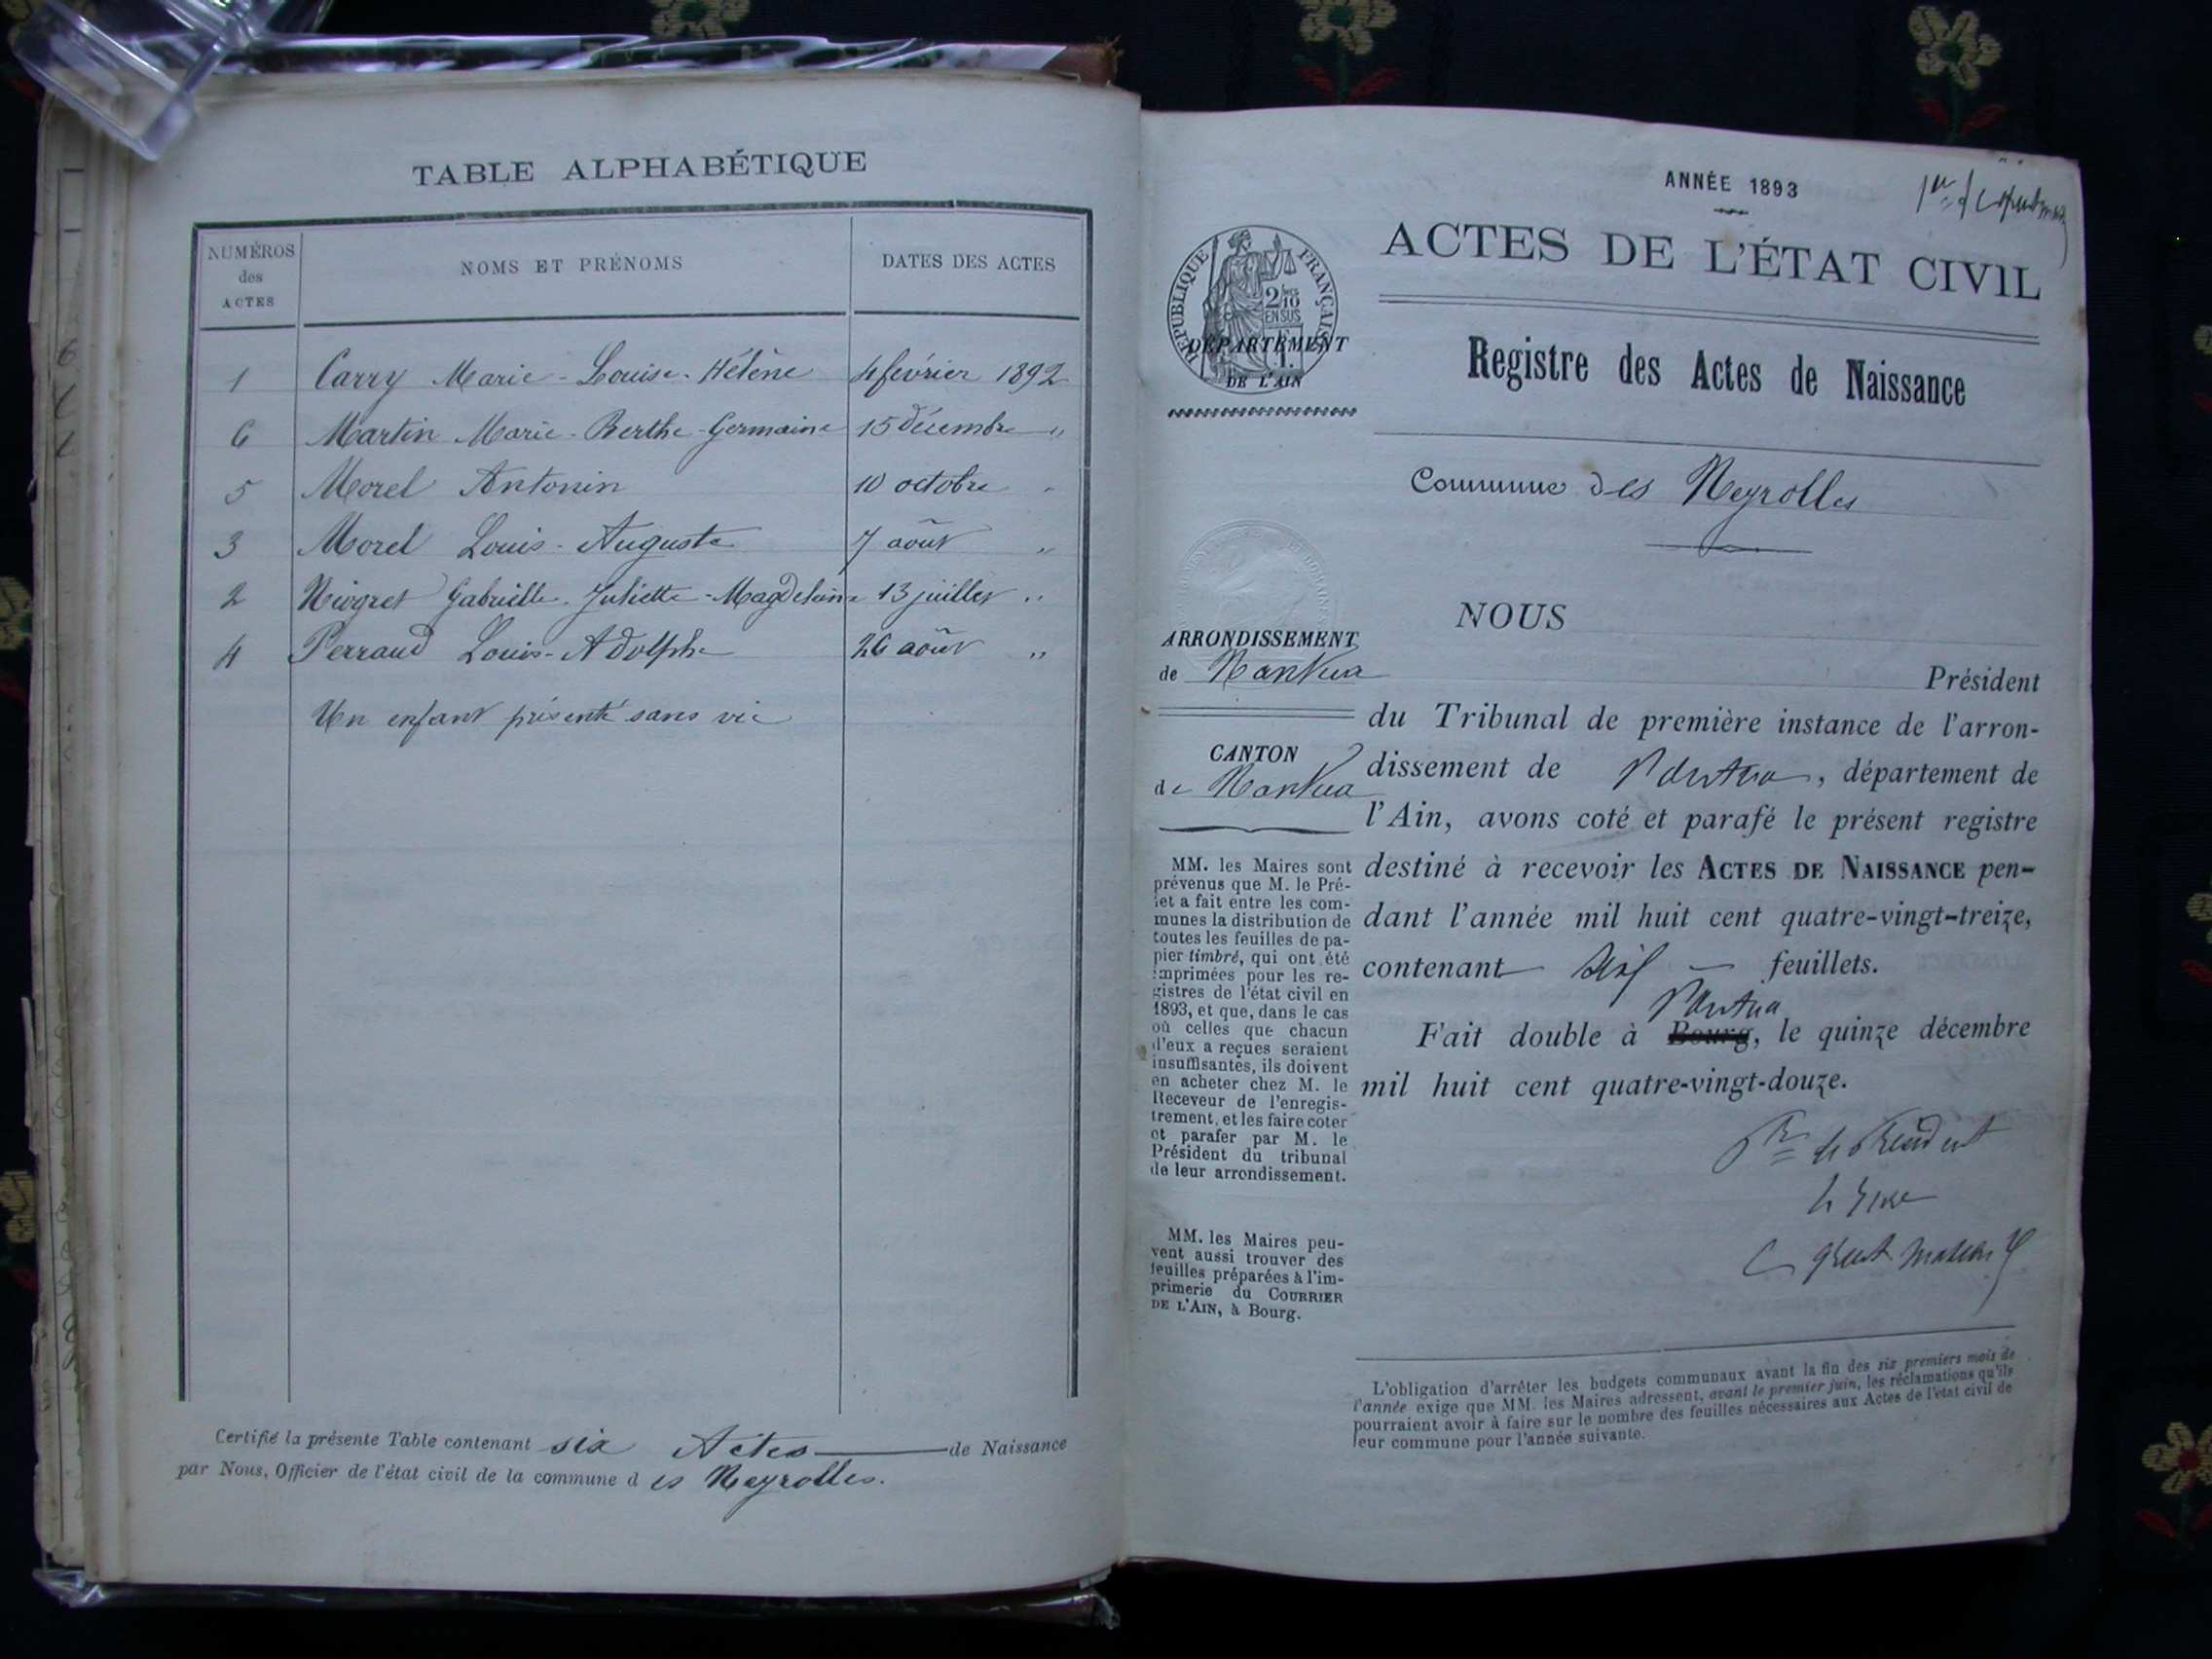 TABLE ALPHABÉTIQUE
NUMÉROS
des
ACTES
NOMS ET PRÉNOMS
DATES DES ACTES
1 Carry Marie-Louise-Hélène 4 février 1892
6 Martin Marie-Berthe-Germaine 15 décembre "
5 Morel Antonin 10 octobre "
3 Morel Louis-Auguste 7 août "
2 Niogret Gabrielle-Juliette-Magdeleine 13 juillet "
4 Perraud Louis-Adolphe 26 août "
Un enfant présenté sans vie
Certifié la présente Table contenant six Actes de Naissance
par Nous, Officier de l'état civil de la commune des Neyrolles.
ANNÉE 1893
ACTES DE L'ÉTAT CIVIL
RÉPUBLIQUE FRANÇAISE
2/10
EN SUS
DÉPARTEMENT
DE L'AIN
Registre des Actes de Naissance
Commune des Neyrolles
ARRONDISSEMENT
de Nantua
CANTON
de Nantua
MM. les Maires sont
prévenus que M. le Pré-
fet a fait entre les com-
munes la distribution de
toutes les feuilles de pa-
pier timbré, qui ont été
imprimées pour les re-
gistres de l'état civil en
1893, et que, dans le cas
où celles que chacun
d'eux a reçues seraient
insuffisantes, ils doivent
en acheter chez M. le
Receveur de l'enregis-
trement, et les faire coter
et parafer par M. le
Président du tribunal
de leur arrondissement.
MM. les Maires peu-
vent aussi trouver des
feuilles préparées à l'im-
primerie du COURRIER
DE L'AIN, à Bourg.
NOUS
Président
du Tribunal de première instance de l'arron-
dissement de Nantua, département de
l'Ain, avons coté et parafé le présent registre
destiné à recevoir les ACTES DE NAISSANCE pen-
dant l'année mil huit cent quatre-vingt-treize,
contenant feuillets.
Nantua
Fait double à Bourg, le quinze décembre
mil huit cent quatre-vingt-douze.
L'obligation d'arrêter les budgets communaux avant la fin des six premiers mois de
l'année exige que MM. les Maires adressent, avant le premier juin, les réclamations qu'ils
pourraient avoir à faire sur le nombre des feuilles nécessaires aux Actes de l'état civil de
leur commune pour l'année suivante.